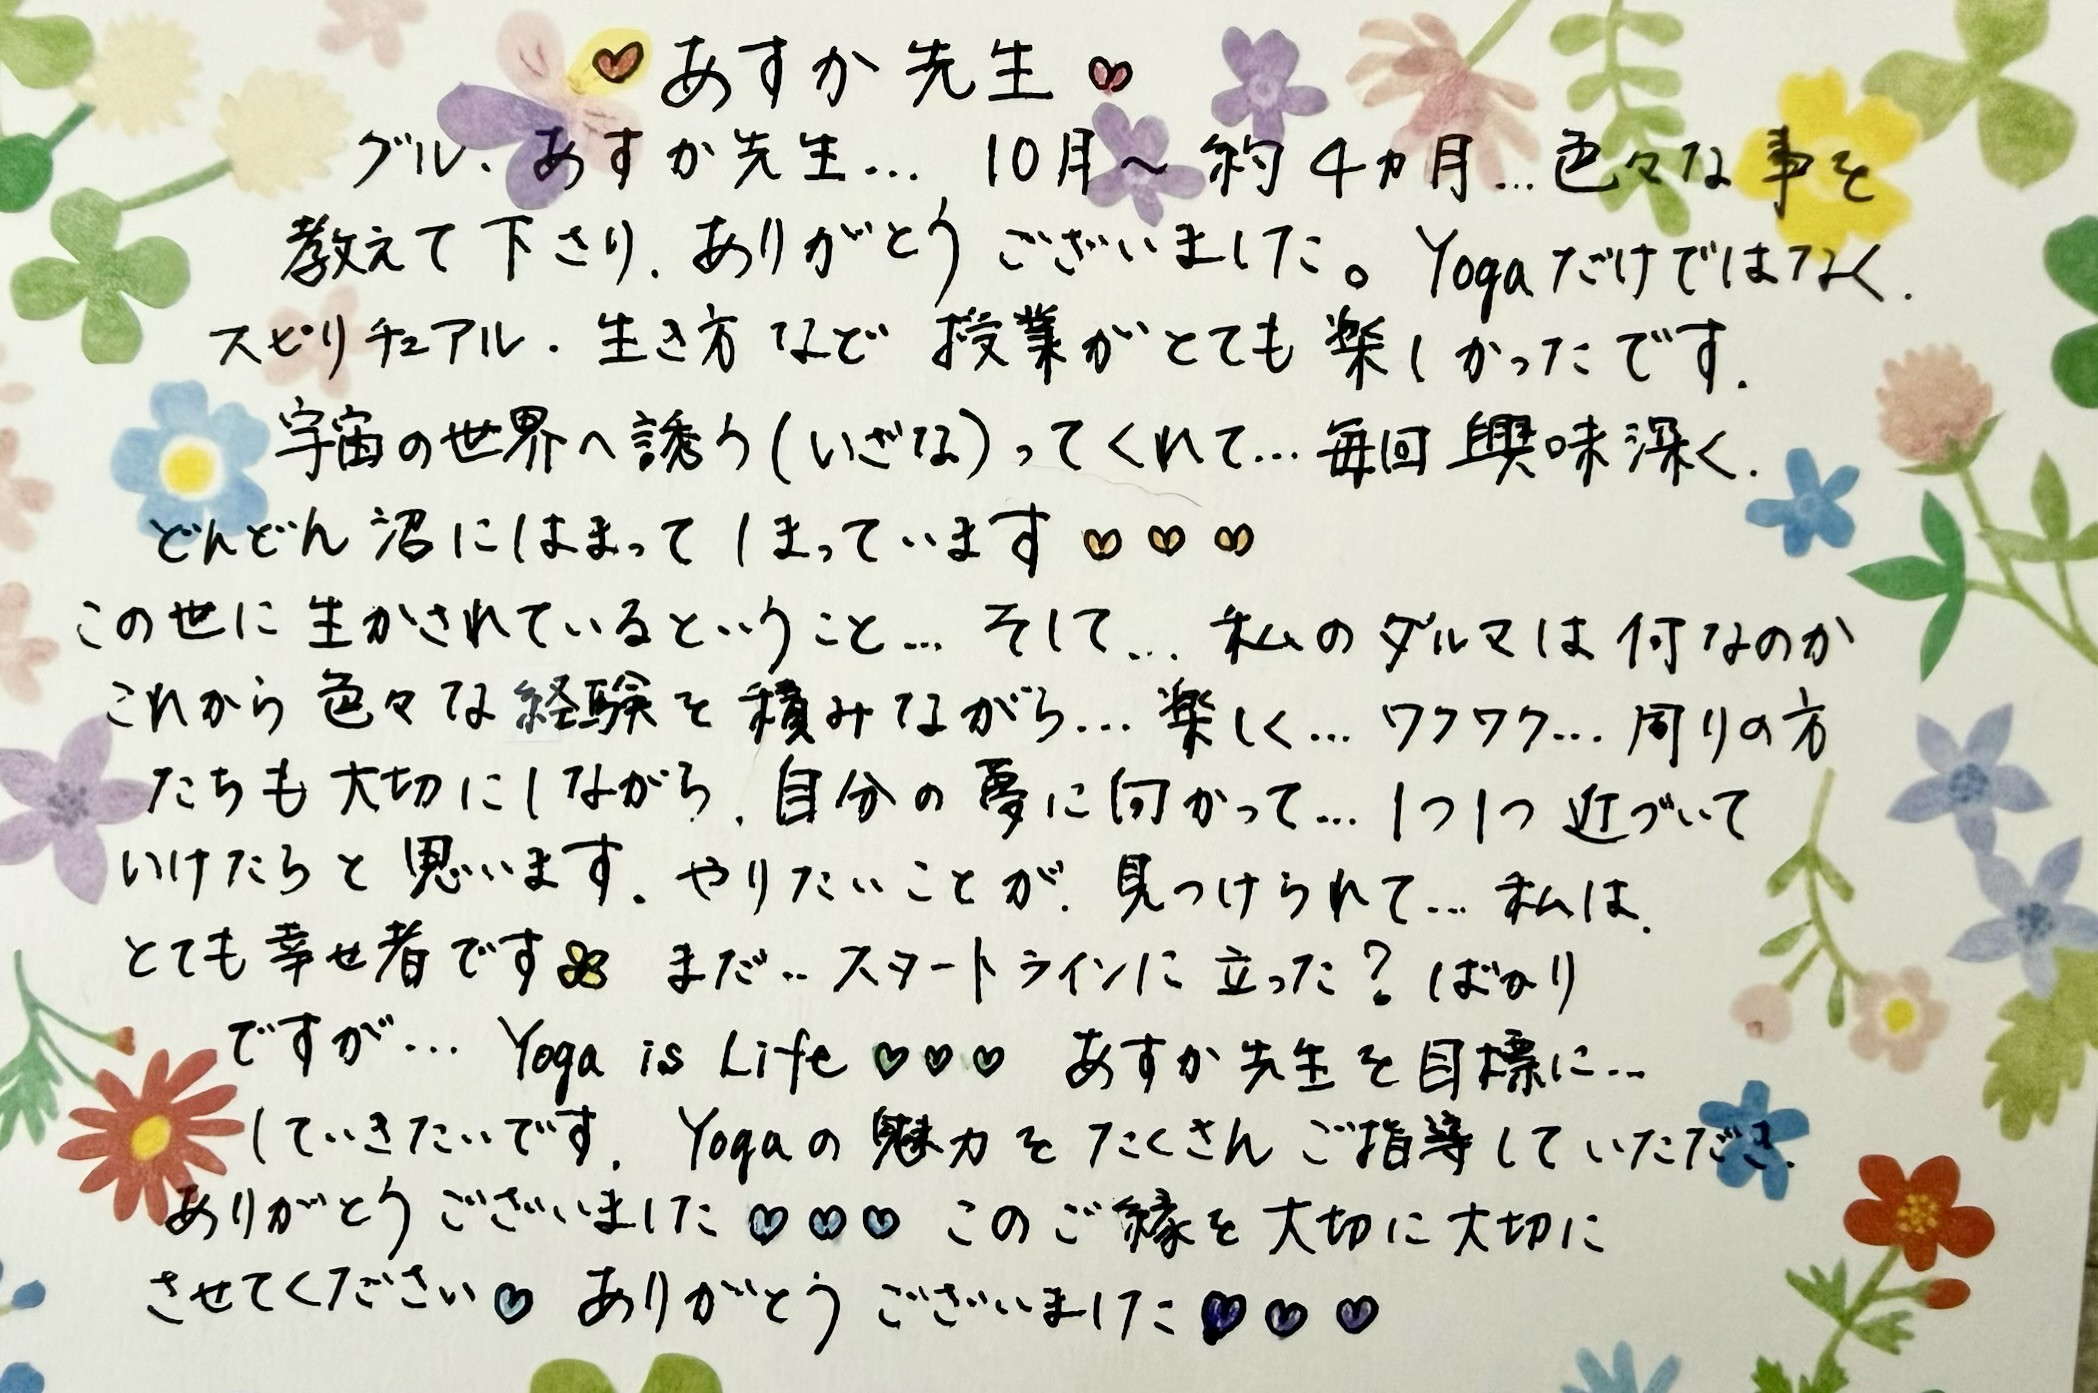 ♥あすか先生♥
グル、あすか先生… 10月～約4ヵ月…色々な事を
教えて下さり、ありがとうございました。Yogaだけではなく、
スピリチュアル・生き方など 授業がとても楽しかったです。
宇宙の世界へ誘う(いざな)ってくれて…毎回興味深く、
どんどん沼にはまってしまっています♡♡♡
この世に生かされているということ… そして… 私のダルマは何なのか
これから色々な経験を積みながら… 楽しく… ワクワク… 周りの方
たちも大切にしながら、自分の夢に向かって… 1つ1つ近づいて
いけたらと思います。やりたいことが、見つけられて… 私は、
とても幸せ者です まだ‥スタートラインに立った？ばかり
ですが… Yoga is Life ♡♡♡ あすか先生を目標に…
していきたいです。Yogaの魅力をたくさんご指導していただき、
ありがとうございました♡♡♡ このご縁を大切に大切に
させてください♡ ありがとうございました♥♡♡